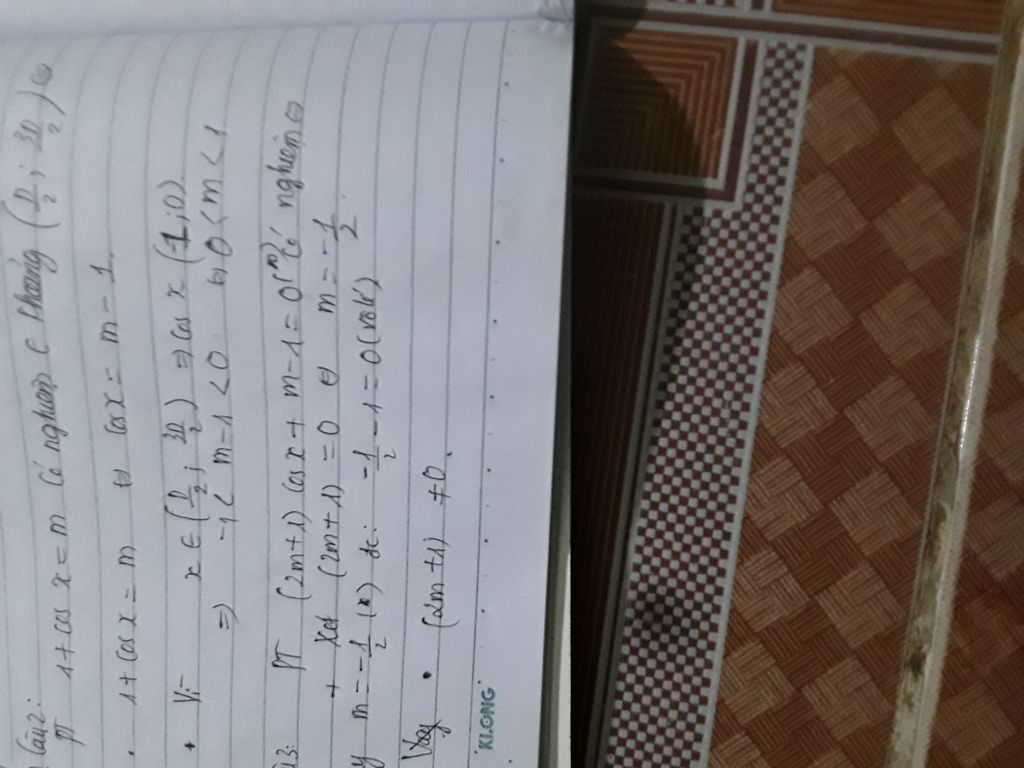 Câu 2:
PT 1+cos x = m Có nghiệm ∈ khoảng (π/2 ; 3π/2) ⇔
• 1+cos x = m ⇔ cos x = m - 1
• Vì x ∈ (π/2 ; 3π/2) ⇒ cos x (-1;0)
⇒ -1 < m-1 < 0 ⇔ 0 < m < 1
3: PT (2m+1) cos x + m-1 = 0 (*) Có nghiệm ⇔
+ Xét (2m+1) = 0 ⇔ m = -1/2
y m = -1/2 (*) -1/2 - 1 = 0 (vô lí)
Vậy • (2m+1) ≠ 0.
KLONG